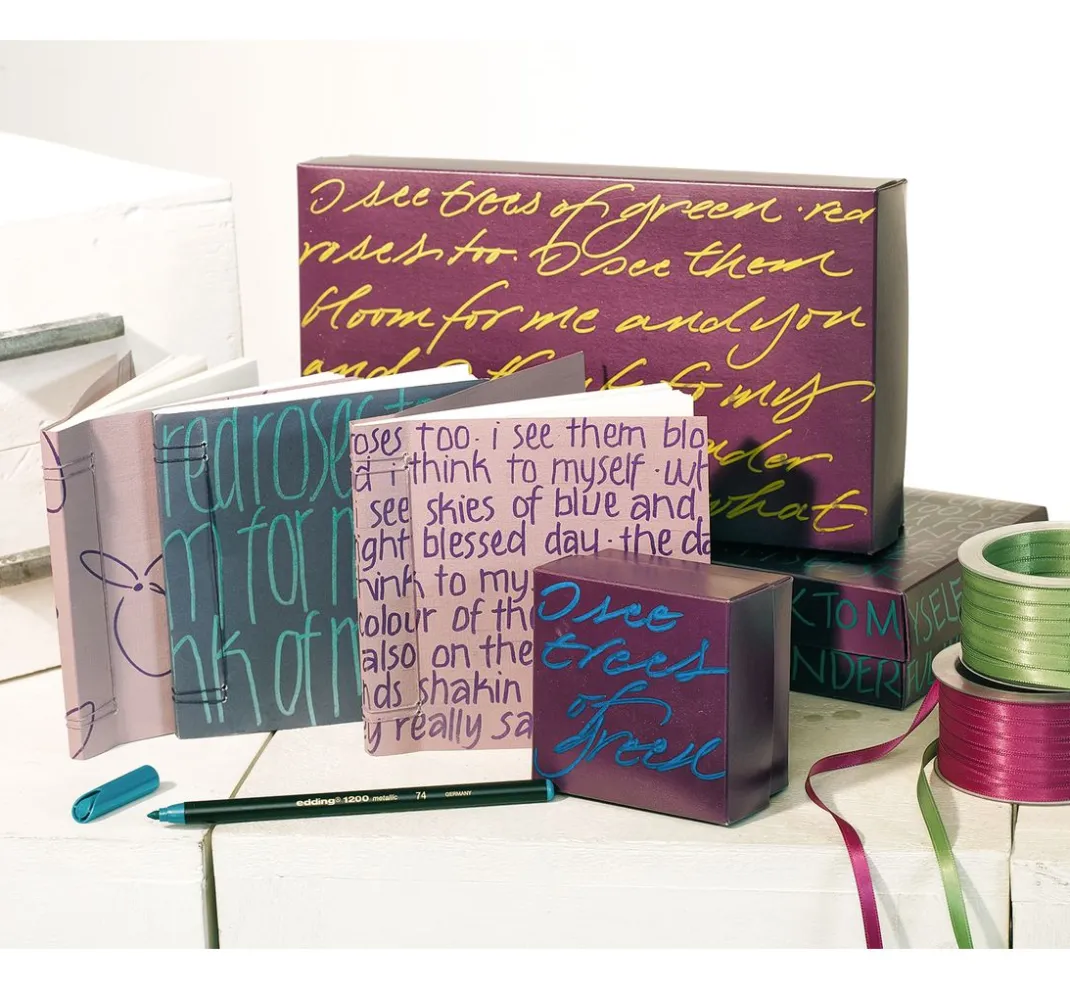 I see trees of green · red
roses too. I see them
bloom for me and you
and to my
what
red roses
m for
nk of m
oses too. i see them blo
d i think to myself · wh
see skies of blue and
ight blessed day · the da
hink to my
colour of the
also on the
nds shakin
y really sa
I see
trees
of
green
K TO MYSELF
NDERFUL
edding® 1200 metallic 74 GERMANY